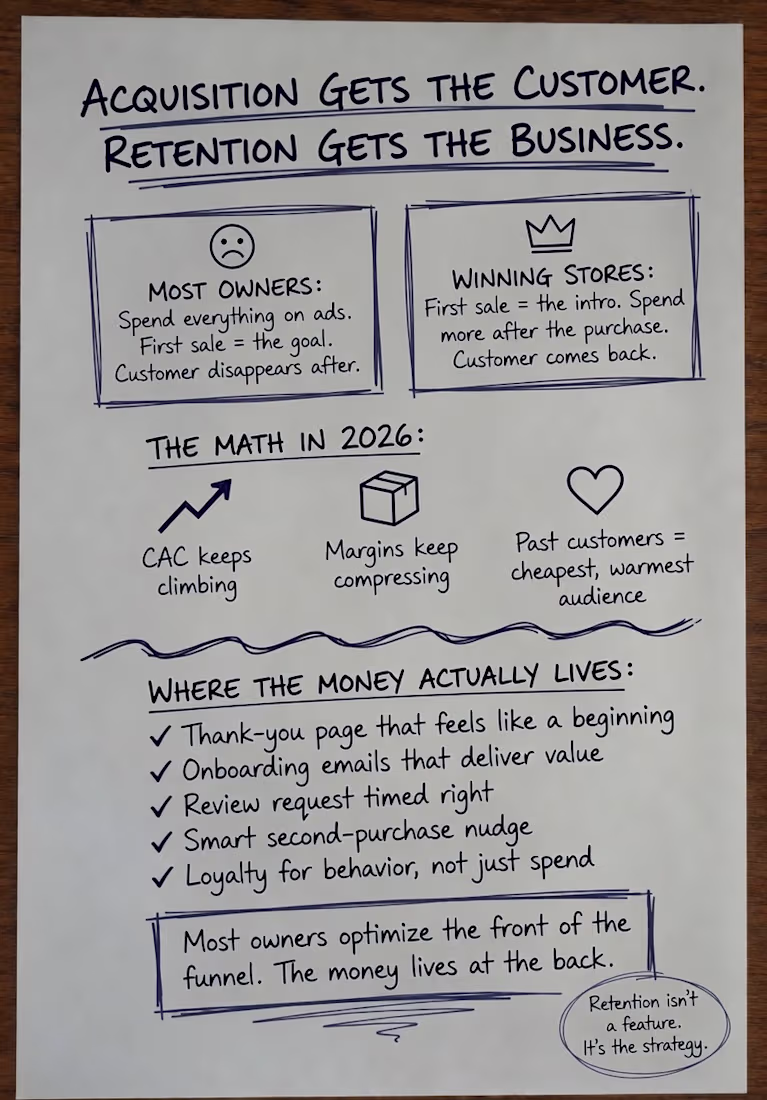 ACQUISITION GETS THE CUSTOMER.
RETENTION GETS THE BUSINESS.
MOST OWNERS:
Spend everything on ads.
First sale = the goal.
Customer disappears after.
WINNING STORES:
First sale = the intro. Spend
more after the purchase.
Customer comes back.
THE MATH IN 2026:
CAC keeps
climbing
Margins keep
compressing
Past customers =
cheapest, warmest
audience
WHERE THE MONEY ACTUALLY LIVES:
✓ Thank-you page that feels like a beginning
✓ Onboarding emails that deliver value
✓ Review request timed right
✓ Smart second-purchase nudge
✓ Loyalty for behavior, not just spend
Most owners optimize the front of the
funnel. The money lives at the back.
Retention isn't
a feature.
It's the strategy.